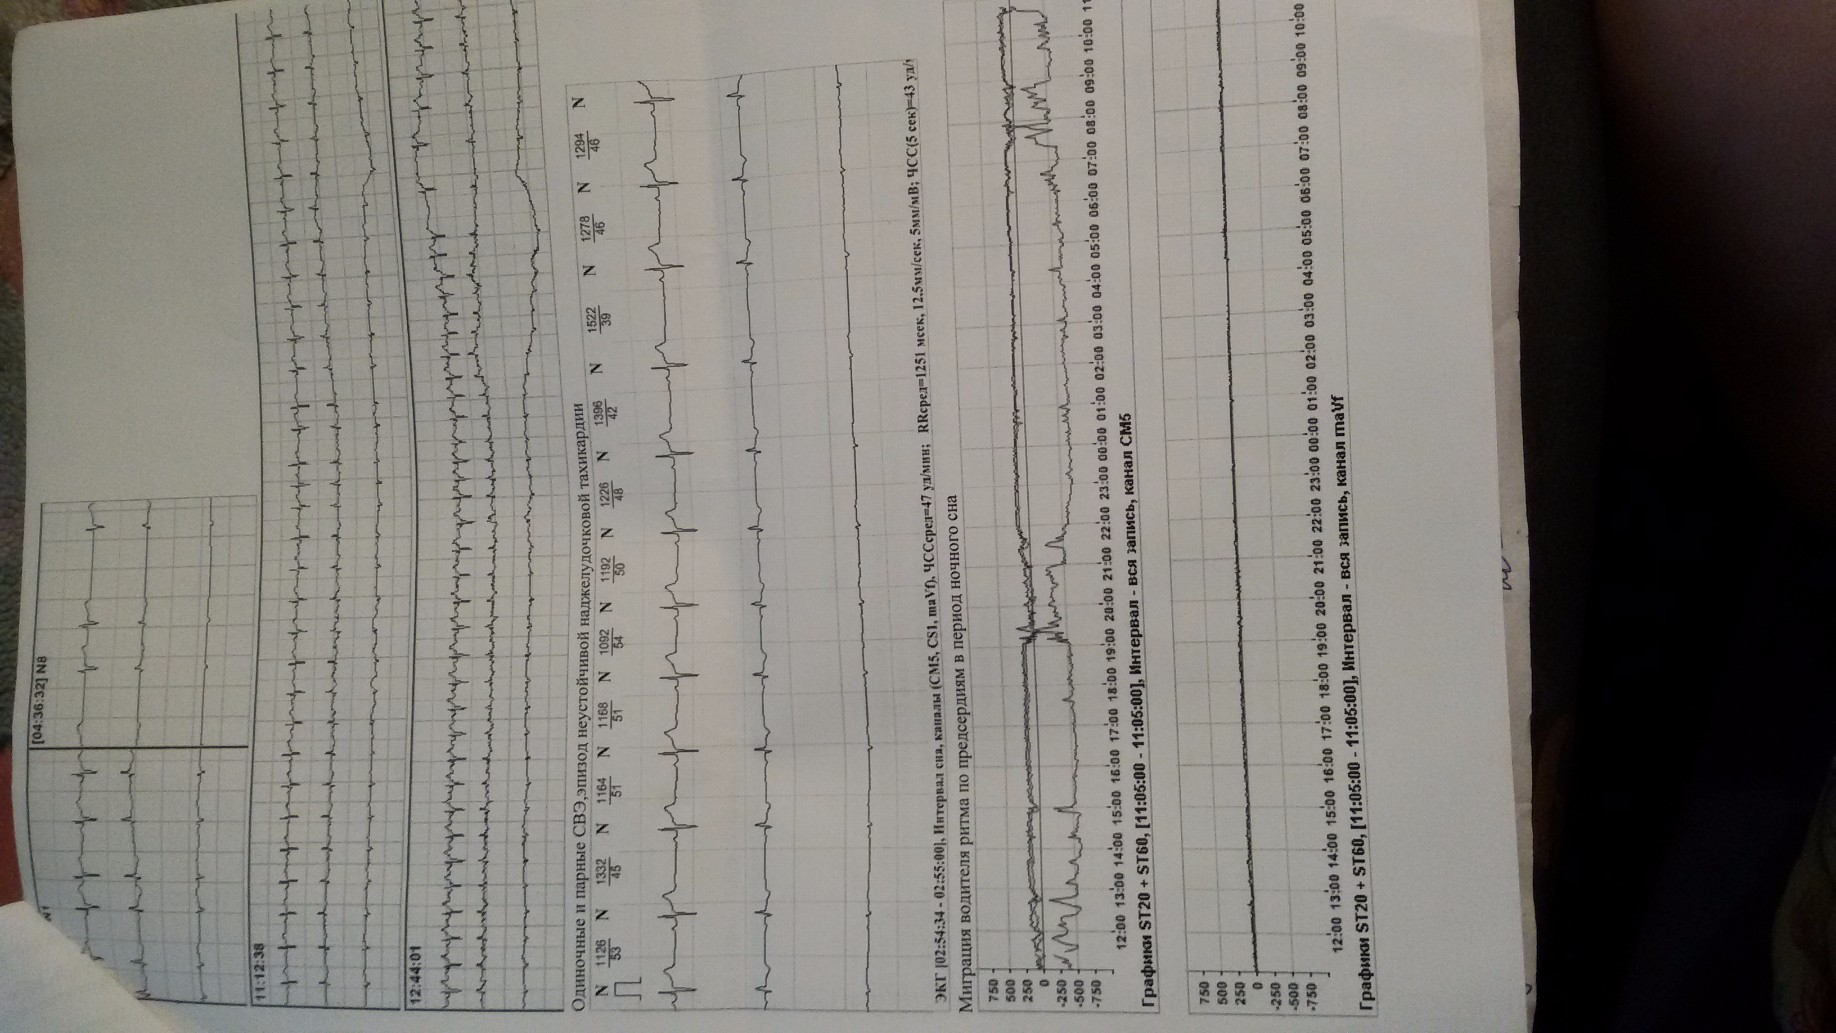 [04:36:32] N8
11:12:38
12:44:01
Одиночные и парные СВЭ,эпизод неустойчивой наджелудочковой тахикардии
N 1126 N 1332 N 1164 N 1168 N 1092 N 1192 N 1226 N 1396 N 1522 N 1278 N 1294 N
53 45 51 51 54 50 48 42 39 46 46
ЭКГ [02:54:34 - 02:55:00], Интервал сна, каналы (CM5, CS1, maVf), ЧССсред=47 уд/мин; RRсред=1251 мсек, 12.5мм/сек, 5мм/мВ; ЧСС(5 сек)=43 уд/
Миграция водителя ритма по предсердиям в период ночного сна
750
500
250
0
-250
-500
-750
12:00 13:00 14:00 15:00 16:00 17:00 18:00 19:00 20:00 21:00 22:00 23:00 00:00 01:00 02:00 03:00 04:00 05:00 06:00 07:00 08:00 09:00 10:00 11
Графики ST20 + ST60, [11:05:00 - 11:05:00], Интервал - вся запись, канал CM5
750
500
250
0
-250
-500
-750
12:00 13:00 14:00 15:00 16:00 17:00 18:00 19:00 20:00 21:00 22:00 23:00 00:00 01:00 02:00 03:00 04:00 05:00 06:00 07:00 08:00 09:00 10:00
Графики ST20 + ST60, [11:05:00 - 11:05:00], Интервал - вся запись, канал maVf